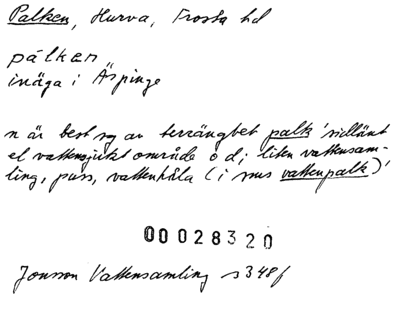 Palken, Hurva, Frosta hd
pálken
inäga i Äspinge
n är best sg av terrängbet palk 'sidlänt
el vattensjukt område o d; liten vattensam-
ling, puss, vattenhåla (i sms vattenpalk)'
00028320
Jonsson Vattensamling s 348 f